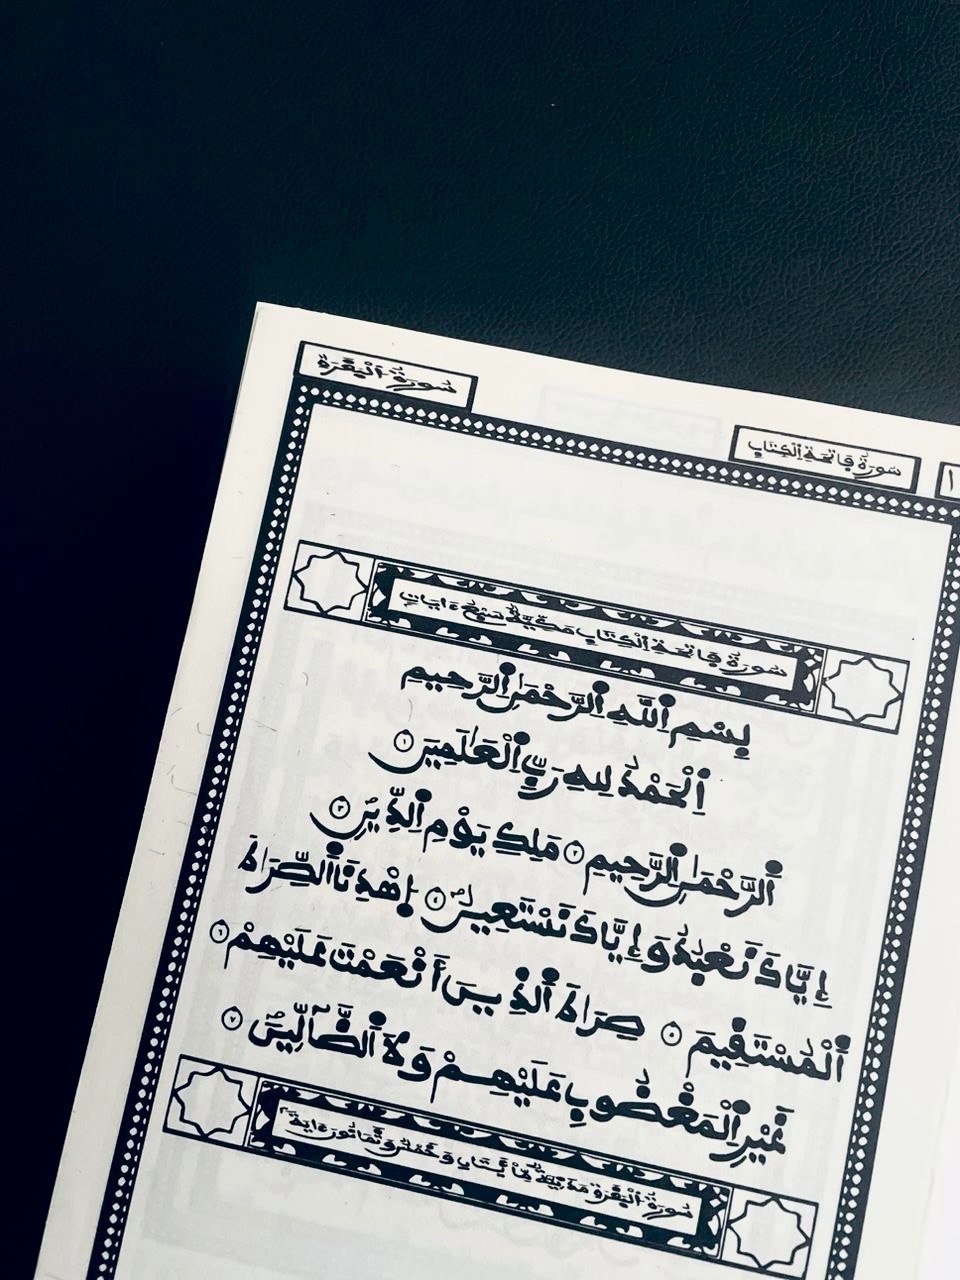 سورة فاتحة الكتاب
١
سورة البقرة
سورة فاتحة الكتاب مكية سبع ءايات
بِسْمِ اِ۬للَّهِ اِ۬لرَّحْمَٰنِ اِ۬لرَّحِيمِ
اِ۬لْحَمْدُ لِلهِ رَبِّ اِ۬لْعَٰلَمِينَ ١
اَ۬لرَّحْمَٰنِ اِ۬لرَّحِيمِ ٢ مَلِكِ يَوْمِ اِ۬لدِّينِ ٣
إِيَّاكَ نَعْبُدُ وَإِيَّاكَ نَسْتَعِينُ ٤ اِ۪هْدِنَا اَ۬لصِّرَٰطَ
اَ۬لْمُسْتَقِيمَ ٥ صِرَٰطَ اَ۬لذِينَ أَنْعَمْتَ عَلَيْهِمْ ٦
غَيْرِ اِ۬لْمَغْضُوبِ عَلَيْهِمْ وَلَا اَ۬لضَّآلِّينَ ٧
سورة البقرة مدنية مائتان وخمس وثمانون ءاية